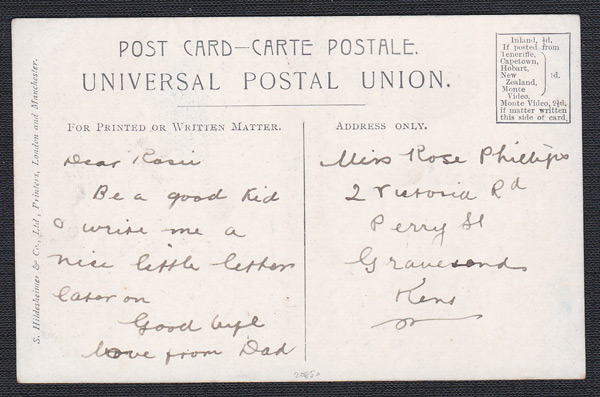 POST CARD—CARTE POSTALE.
UNIVERSAL POSTAL UNION.
Inland, ½d.
If posted from
Teneriffe,
Capetown,
Hobart,
New
Zealand,
Monte
Video.
1d.
Monte Video, 2½d,
if matter written
this side of card.
FOR PRINTED OR WRITTEN MATTER.
Dear Rosie
Be a good Kid
& write me a
nice little letter
later on
Good bye
love from Dad
ADDRESS ONLY.
Miss Rose Phillips
2 Victoria Rd
Perry St
Gravesend
Kent
S. Hildesheimer & Co., Ltd., Printers, London and Manchester.